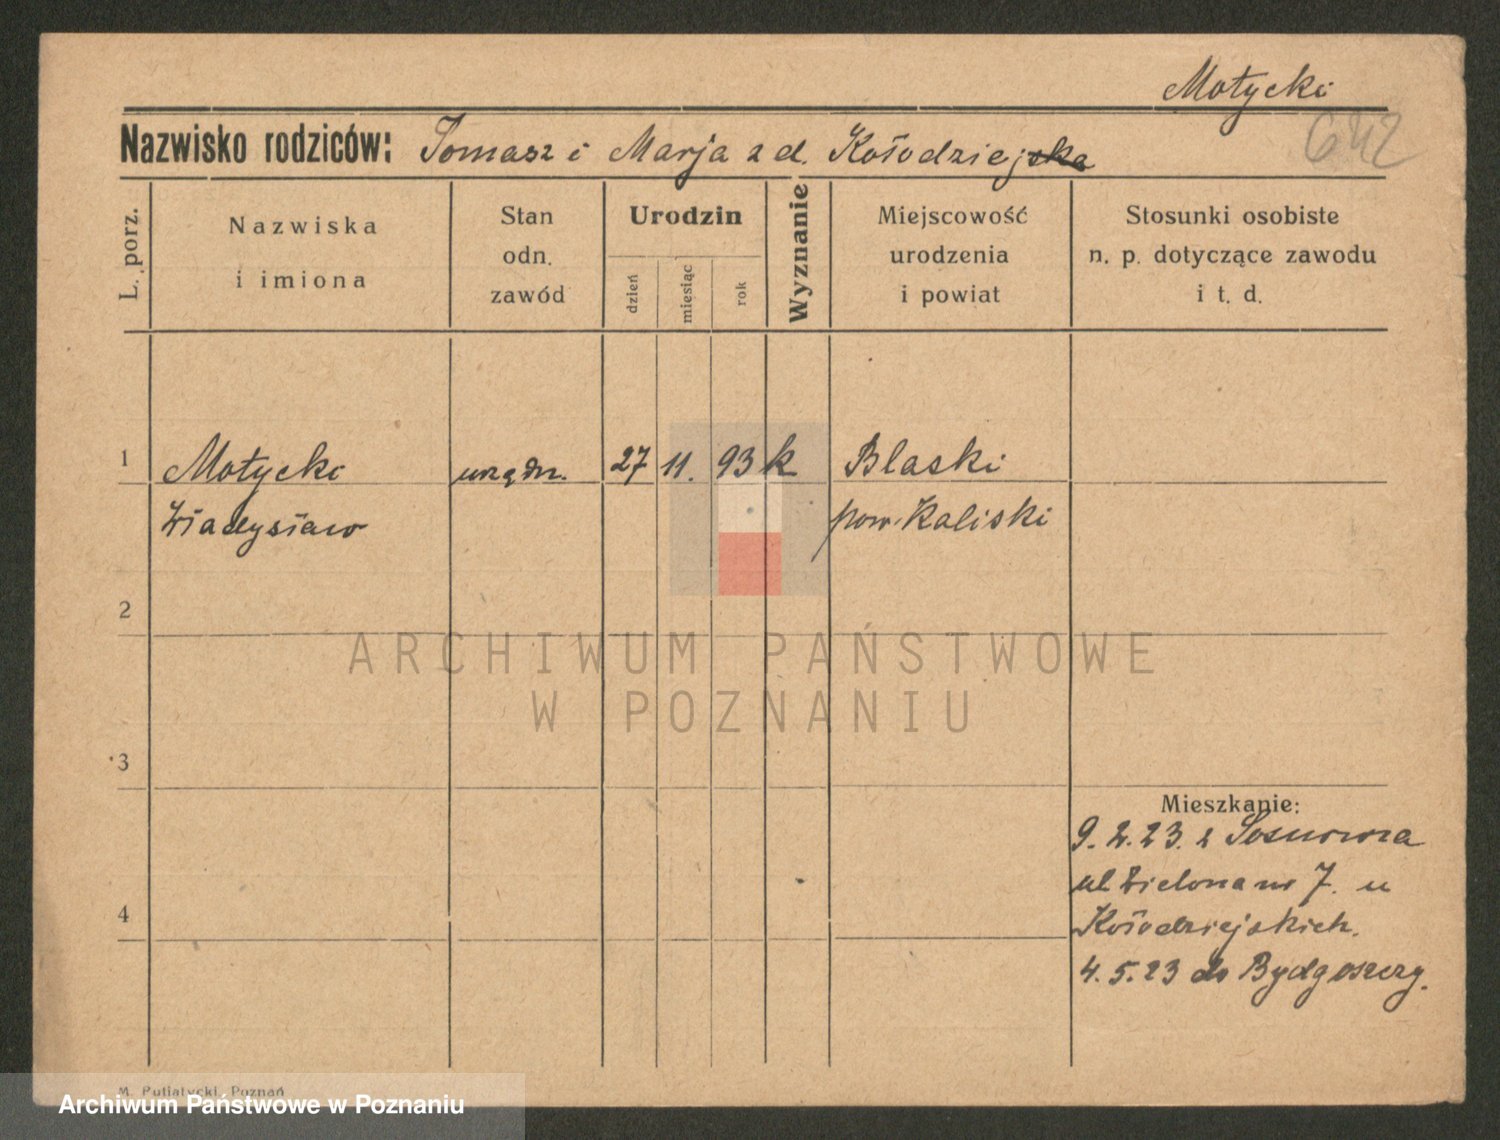 Motycki
642
Nazwisko rodziców: Tomasz i Marja z d. Kołodziejska
L. porz.
Nazwiska
i imiona
Stan
odn.
zawód
Urodzin
dzień
miesiąc
rok
Wyznanie
Miejscowość
urodzenia
i powiat
Stosunki osobiste
n. p. dotyczące zawodu
i t. d.
1 Motycki urzędn. 27 11. 93 k Blaski
Władysław pow. Kaliski
2
ARCHIWUM PAŃSTWOWE
W POZNANIU
3
Mieszkanie:
9. 2. 23. z Sosnowca
ul Zielona nr 7. u
4 Kołodziejskich.
4. 5. 23 do Bydgoszczy.
M. Putiatycki, Poznań
Archiwum Państwowe w Poznaniu